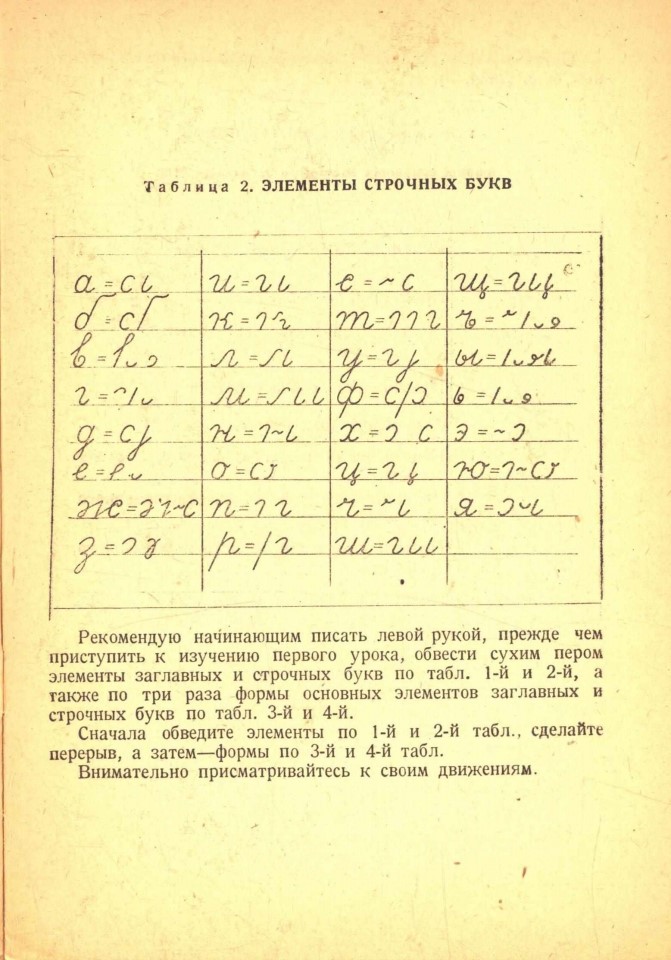 Таблица 2. ЭЛЕМЕНТЫ СТРОЧНЫХ БУКВ
а = 
и = 
с = 
щ = 
б = 
к = 
т = 
ъ = 
в = 
л = 
у = 
ы = 
г = 
м = 
ф = 
ь = 
д = 
н = 
х = 
э = 
е = 
о = 
ц = 
ю = 
ж = 
п = 
ч = 
я = 
з = 
р = 
ш = 
Рекомендую начинающим писать левой рукой, прежде чем
приступить к изучению первого урока, обвести сухим пером
элементы заглавных и строчных букв по табл. 1-й и 2-й, а
также по три раза формы основных элементов заглавных и
строчных букв по табл. 3-й и 4-й.
Сначала обведите элементы по 1-й и 2-й табл., сделайте
перерыв, а затем—формы по 3-й и 4-й табл.
Внимательно присматривайтесь к своим движениям.